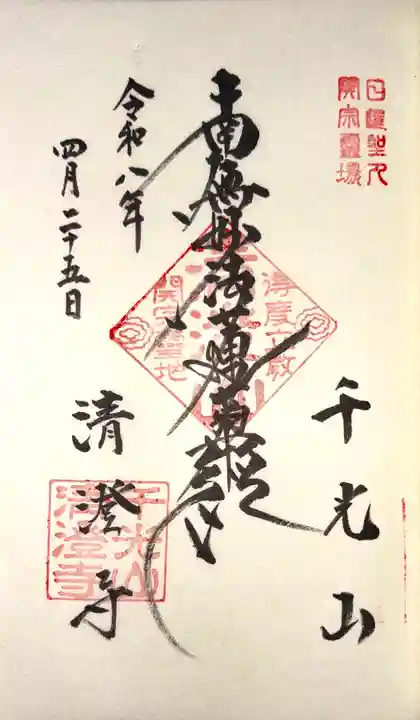 日蓮聖人
開宗霊場
千光山
南無妙法蓮華経
得度立教
開宗聖地
清澄寺
千光山
清澄寺
令和八年
四月二十五日